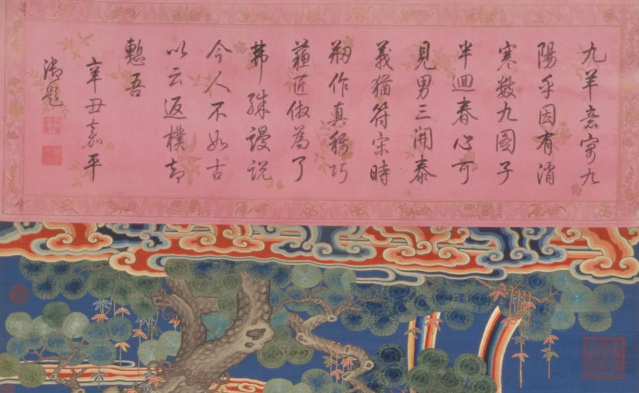 九羊意寓九
陽乎因有消
寒數九圖子
半迴春心可
見男三開泰
義猶符宋時
刱作真稱巧
蘓匠倣為了
弗殊謾說
今人不如古
以云返樸却
慙吾
辛丑嘉平
御題